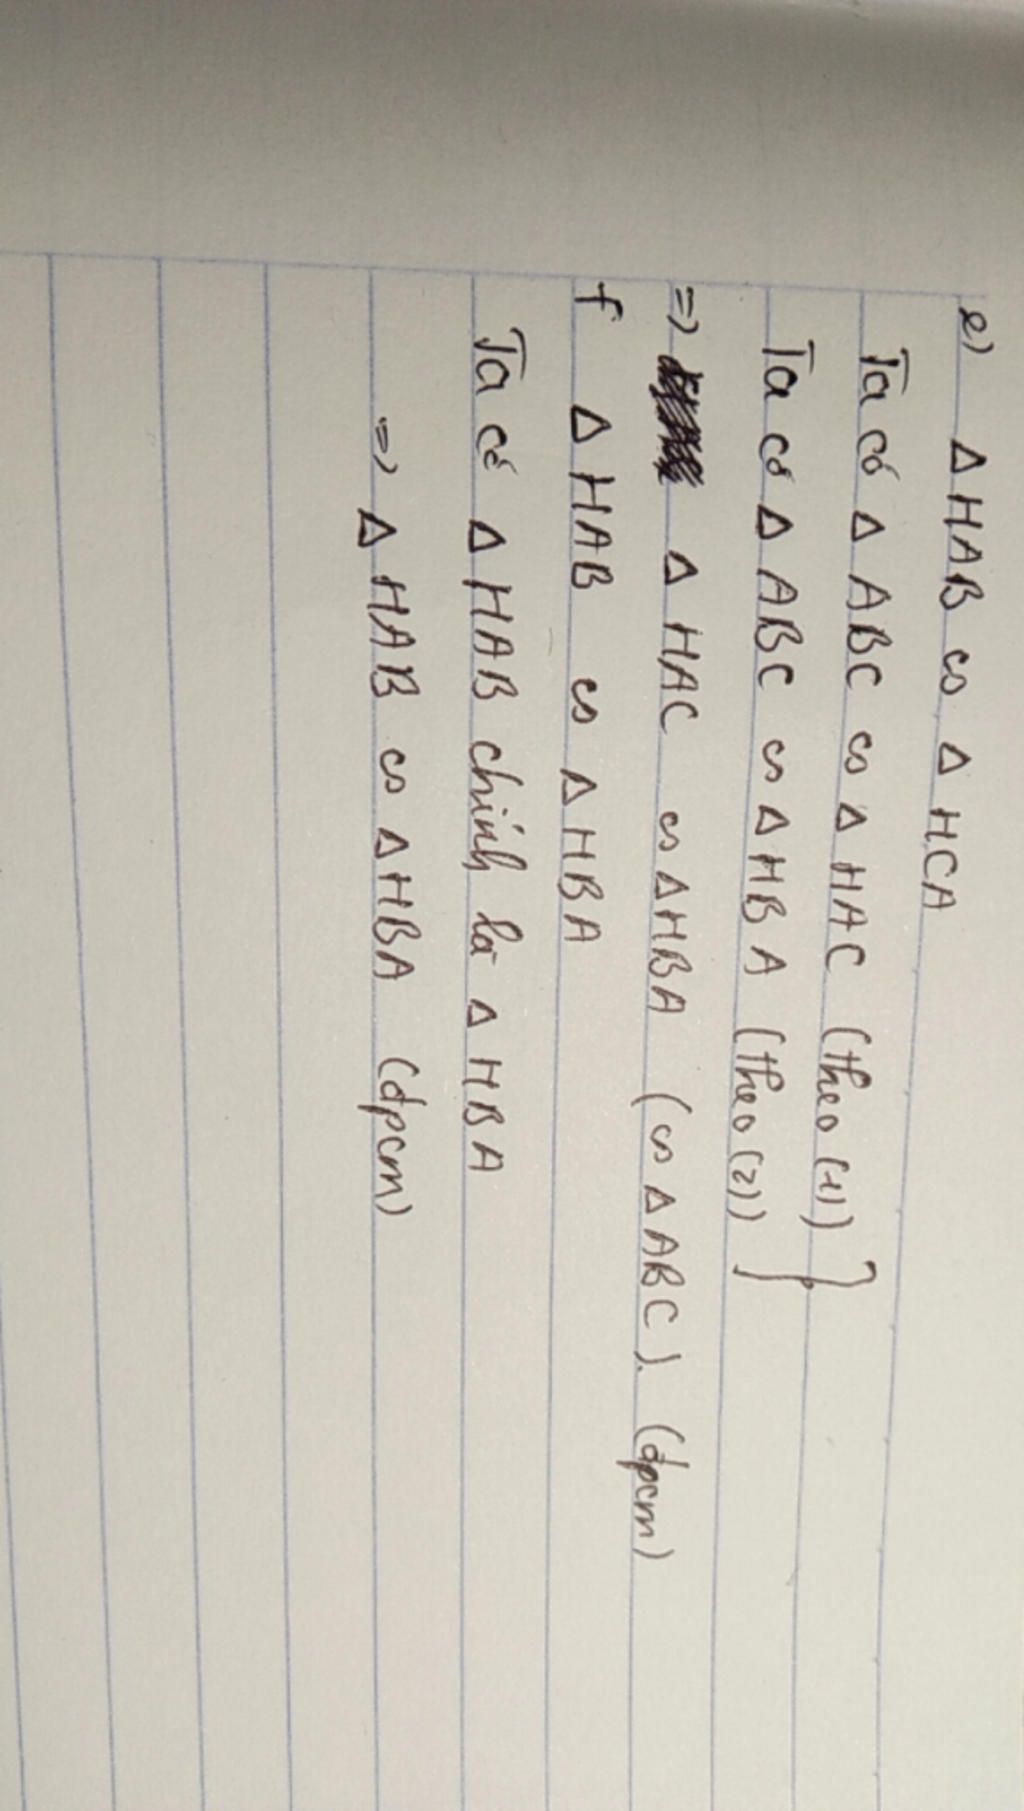 e) Δ HAB ᔕ Δ HCA
Ta có Δ ABC ᔕ Δ HAC (theo (1))
Ta có Δ ABC ᔕ Δ HBA (theo (2)) }
=> Δ HAC ᔕ Δ HBA (ᔕ Δ ABC). (đpcm)
f Δ HAB ᔕ Δ HBA
Ta có Δ HAB chính là Δ HBA
=> Δ HAB ᔕ Δ HBA (đpcm)